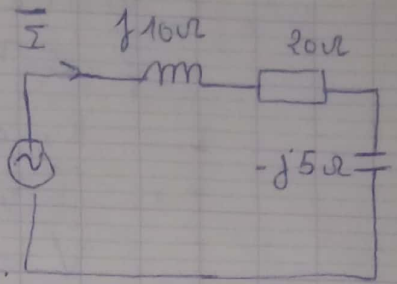 I
j10Ω
20Ω
-j5Ω